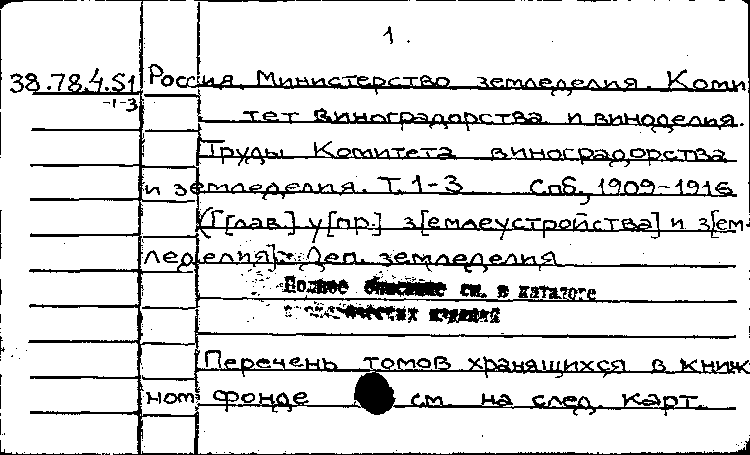 1.
38.78.4.S1 Россия. Министерство земледелия. Коми
-1-3
тет виноградорства и виноделия.
Труды Комитета виноградорства
и земледелия. Т. 1-3 Спб., 1909-1916
(Г[лав.] у[пр.] з[емлеустройства] и з[ем-
леделия]. Деп. земледелия
Полное описание см. в каталоге
изданий
Перечень томов хранящихся в книж
ном фонде см. на след. карт.